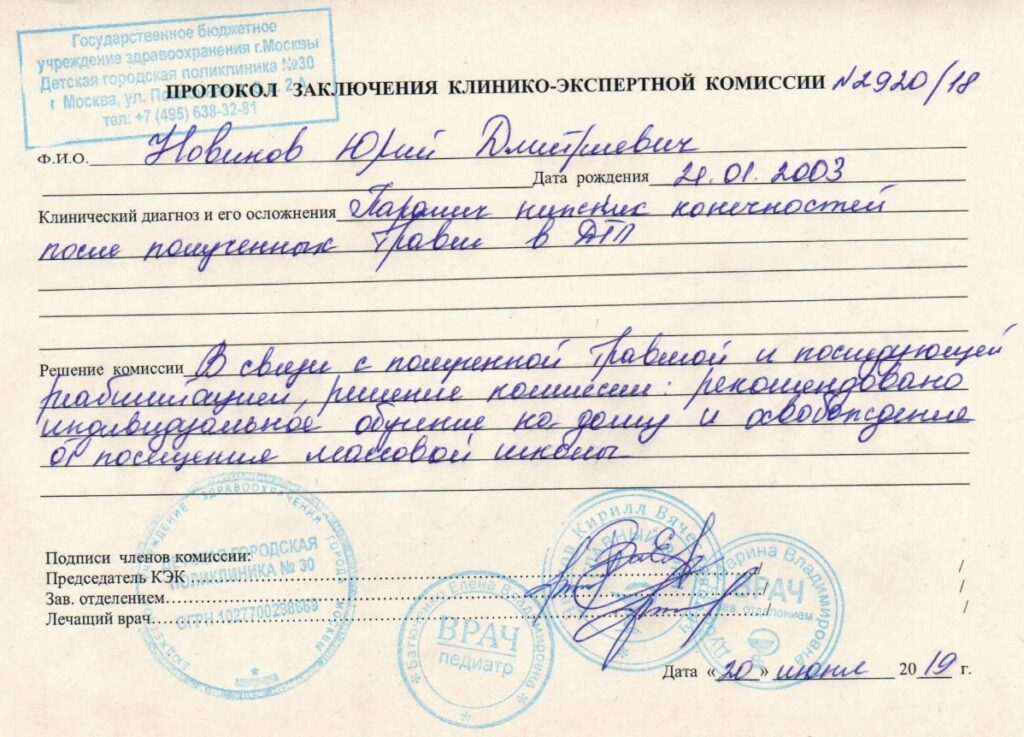 Государственное бюджетное
учреждение здравоохранения г.Москвы
Детская городская поликлиника №30
г Москва, ул. 2-А
тел: +7 (495) 638-32-81
ПРОТОКОЛ ЗАКЛЮЧЕНИЯ КЛИНИКО-ЭКСПЕРТНОЙ КОМИССИИ №2920/18
Ф.И.О. Новиков Юрий Дмитриевич
Дата рождения 01. 2003
Клинический диагноз и его осложнения Паралич нижних конечностей
после полученных травм в ДТП
Решение комиссии В связи с полученной травмой и последующей
реабилитацией, решение комиссии: рекомендовано
индивидуальное обучение на дому и освобождение
от посещения массовой школы
Подписи членов комиссии:
Председатель КЭК / /
Зав. отделением / /
Лечащий врач / /
Дата «20» июня 2019 г.
ЗДРАВООХРАНЕНИЯ ГОРОДА МОСКВЫ
ДЕТСКАЯ ГОРОДСКАЯ
ПОЛИКЛИНИКА № 30
ОГРН 1027700298969
Елена Владимировна
ВРАЧ
педиатр
Кирилл
Марина Владимировна
ВРАЧ
зав. отделением